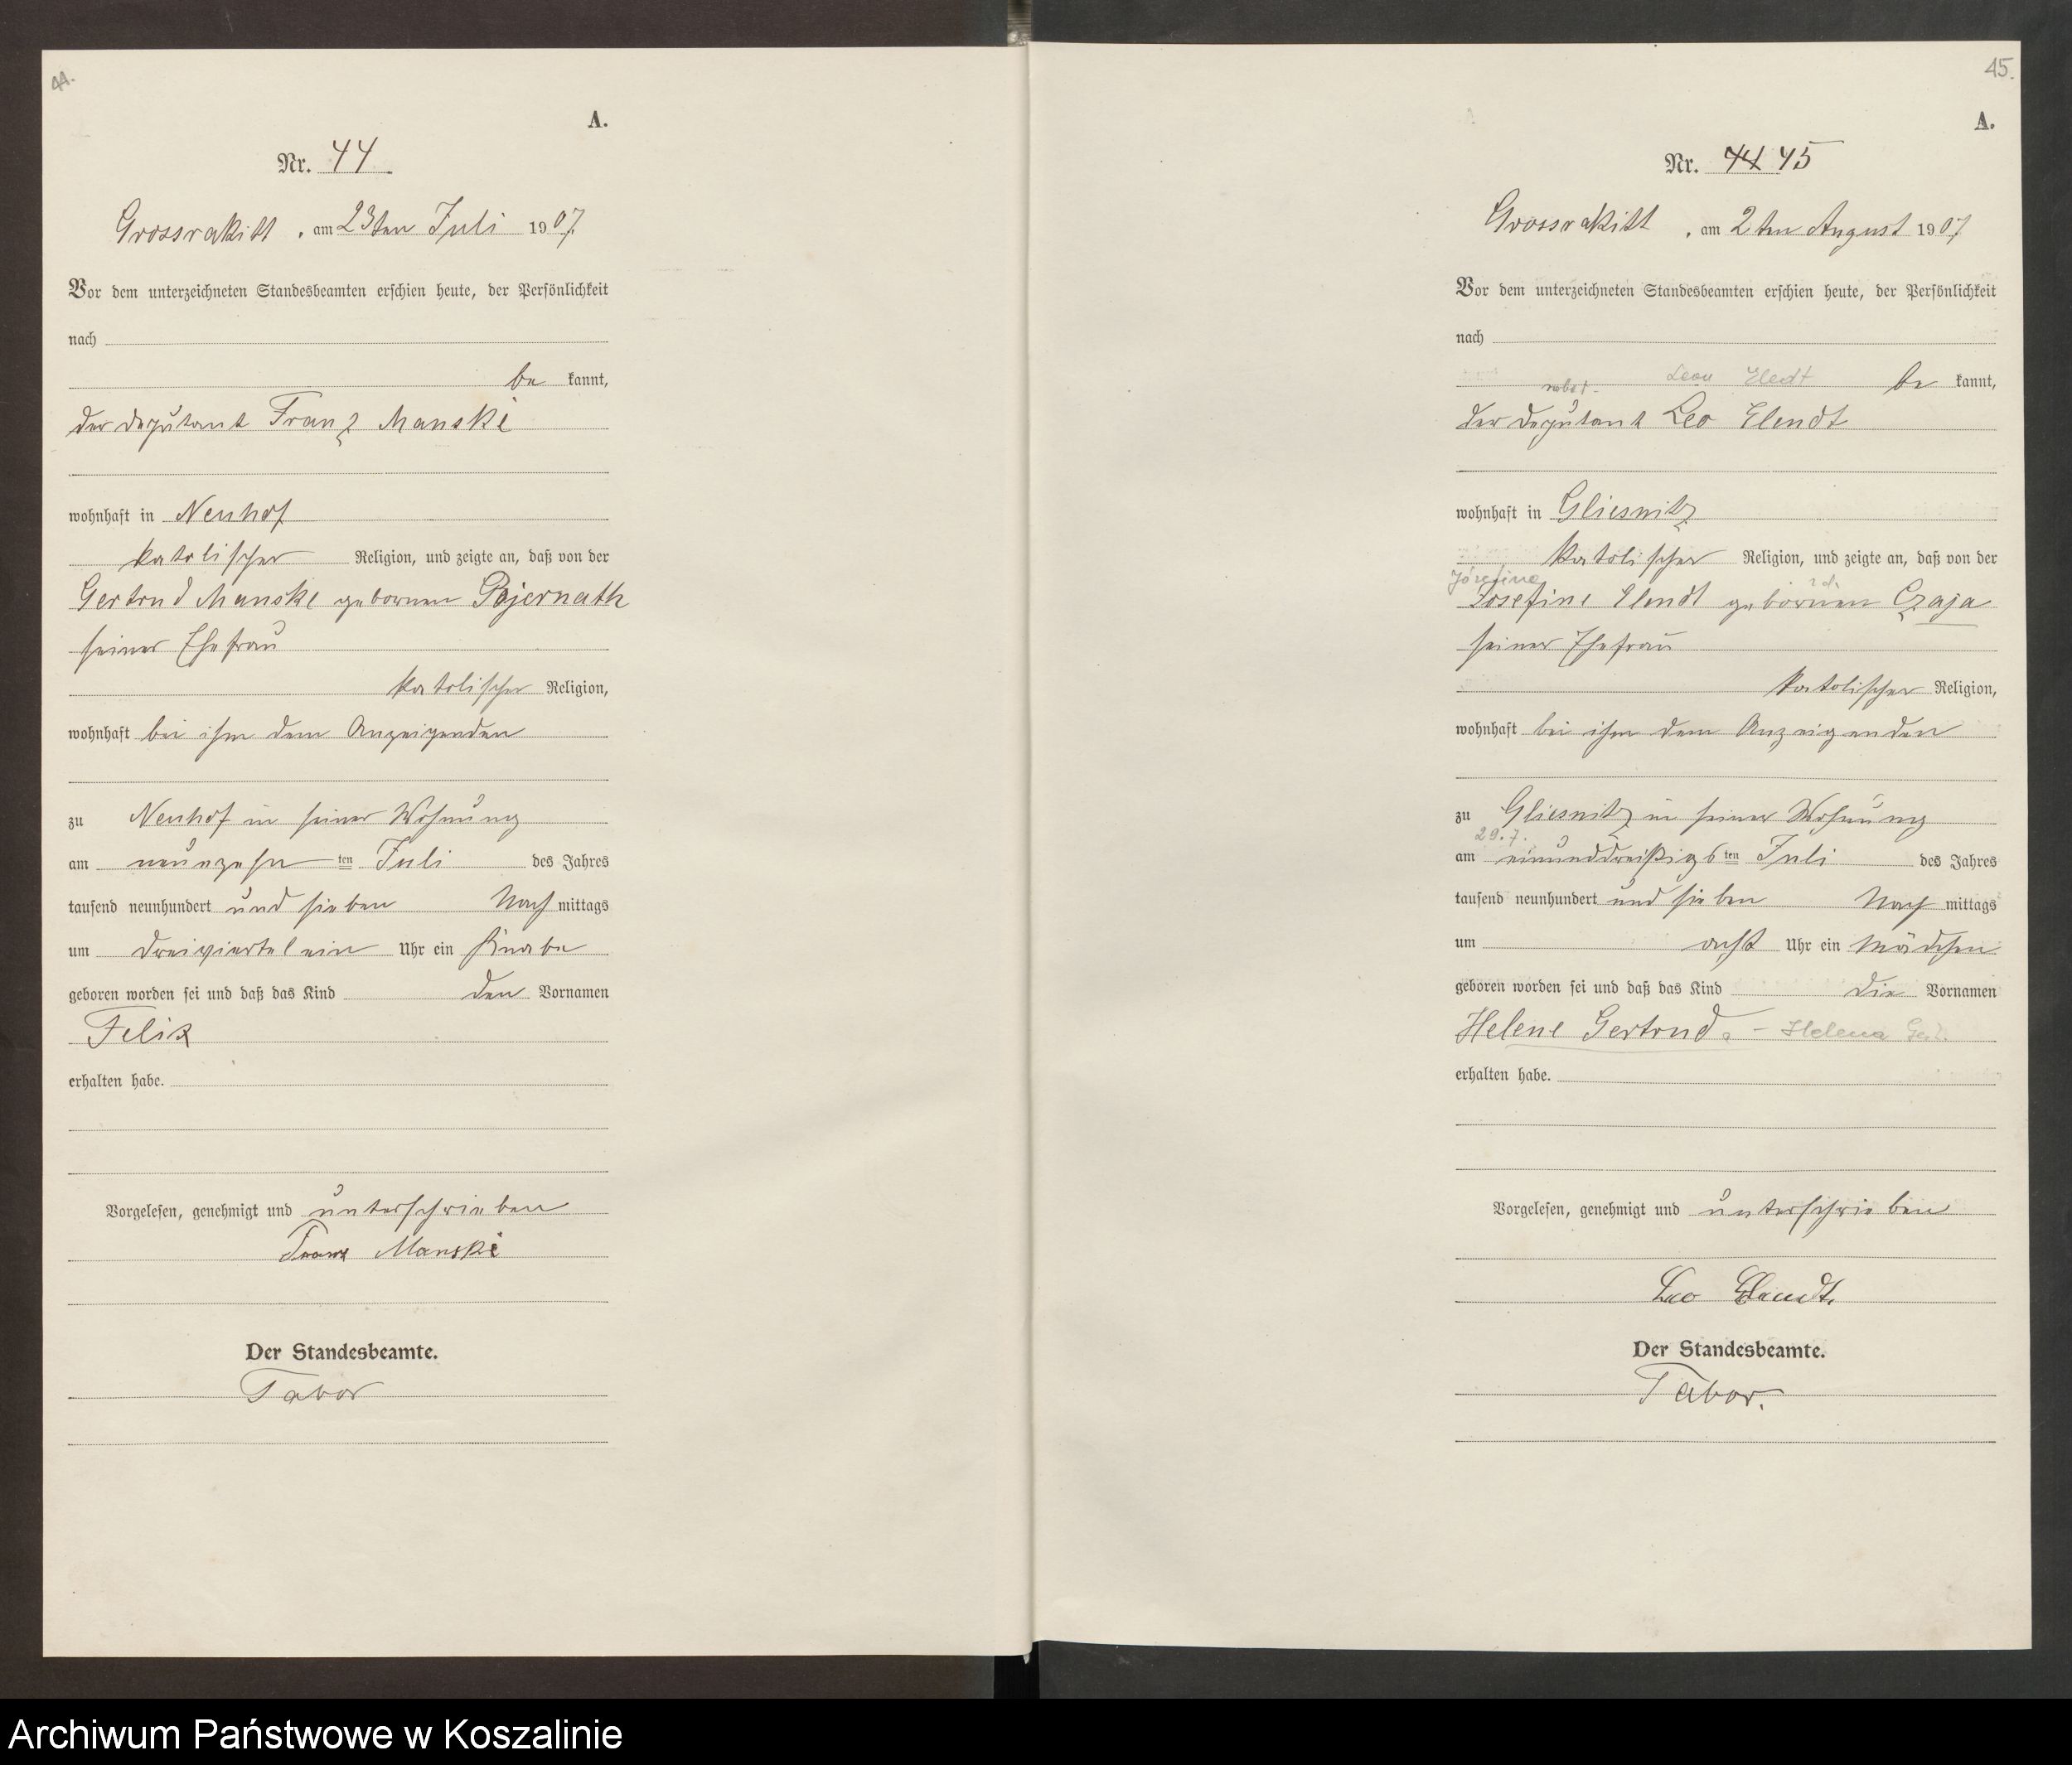 44.
A.
Nr. 44
Grossrakitt, am 23ten Juli 1907.
Vor dem unterzeichneten Standesbeamten erschien heute, der Persönlichkeit
nach
be kannt,
der Deputant Franz Manske
wohnhaft in Neuhof
katolischer Religion, und zeigte an, daß von der
Gertrud Manske gebornen Pojernath
seiner Ehefrau
katolischer Religion,
wohnhaft bei ihm dem Anzeigenden
zu Neuhof in seiner Wohnung
am neunzehn ten Juli des Jahres
tausend neunhundert und sieben Nach mittags
um dreiviertel ein Uhr ein Knabe
geboren worden sei und daß das Kind den Vornamen
Felix
erhalten habe.
Vorgelesen, genehmigt und unterschrieben
Franz Manske
Der Standesbeamte.
Tabor
45.
A.
Nr. 44 45
Grossrakitt, am 2ten August 1907
Vor dem unterzeichneten Standesbeamten erschien heute, der Persönlichkeit
nach
Leon Elendt be kannt,
robot.
der Deputant Leo Elendt
wohnhaft in Gliesnitz
katolischer Religion, und zeigte an, daß von der
Józefina
Josefine Elendt gebornen Czaja
seiner Ehefrau
katolischer Religion,
wohnhaft bei ihm dem Anzeigenden
zu Gliesnitz in seiner Wohnung
29.7.
am einunddreißigs ten Juli des Jahres
tausend neunhundert und sieben Nach mittags
um acht Uhr ein Mädchen
geboren worden sei und daß das Kind die Vornamen
Helene Gertrud. - Helena
erhalten habe.
Vorgelesen, genehmigt und unterschrieben
Leo Elendt.
Der Standesbeamte.
Tabor.
Archiwum Państwowe w Koszalinie